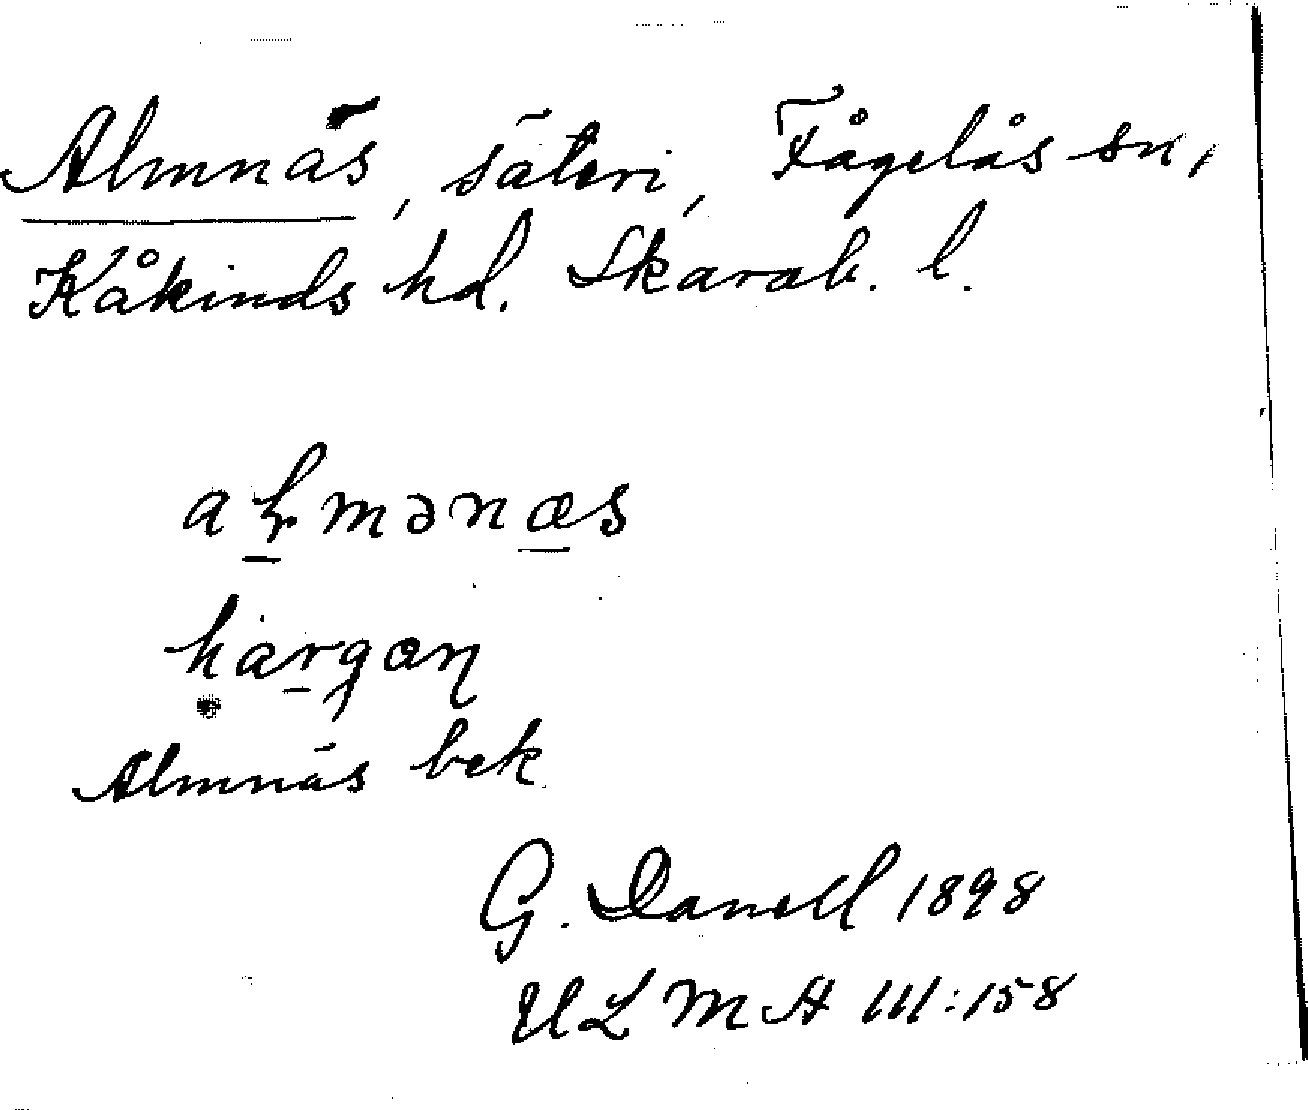 Almnäs, säteri, Fågelås sn,
Kåkinds hd. Skarab. l.
aɫmənæs
hargan
Almnäs bek
G. Danell 1898
ULMA 111:158